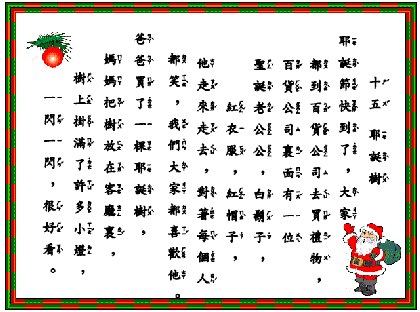 十五 耶誕樹
耶誕節快到了，大家
都到百貨公司去買禮物，
百貨公司裏面有一位
聖誕老公公，白鬍子，
紅衣服，紅帽子，
他走來走去，對著每個人
都笑，我們大家都喜歡他。
爸爸買了一棵耶誕樹，
媽媽把樹放在客廳裏，
樹上掛滿了許多小燈，
一閃一閃，很好看。